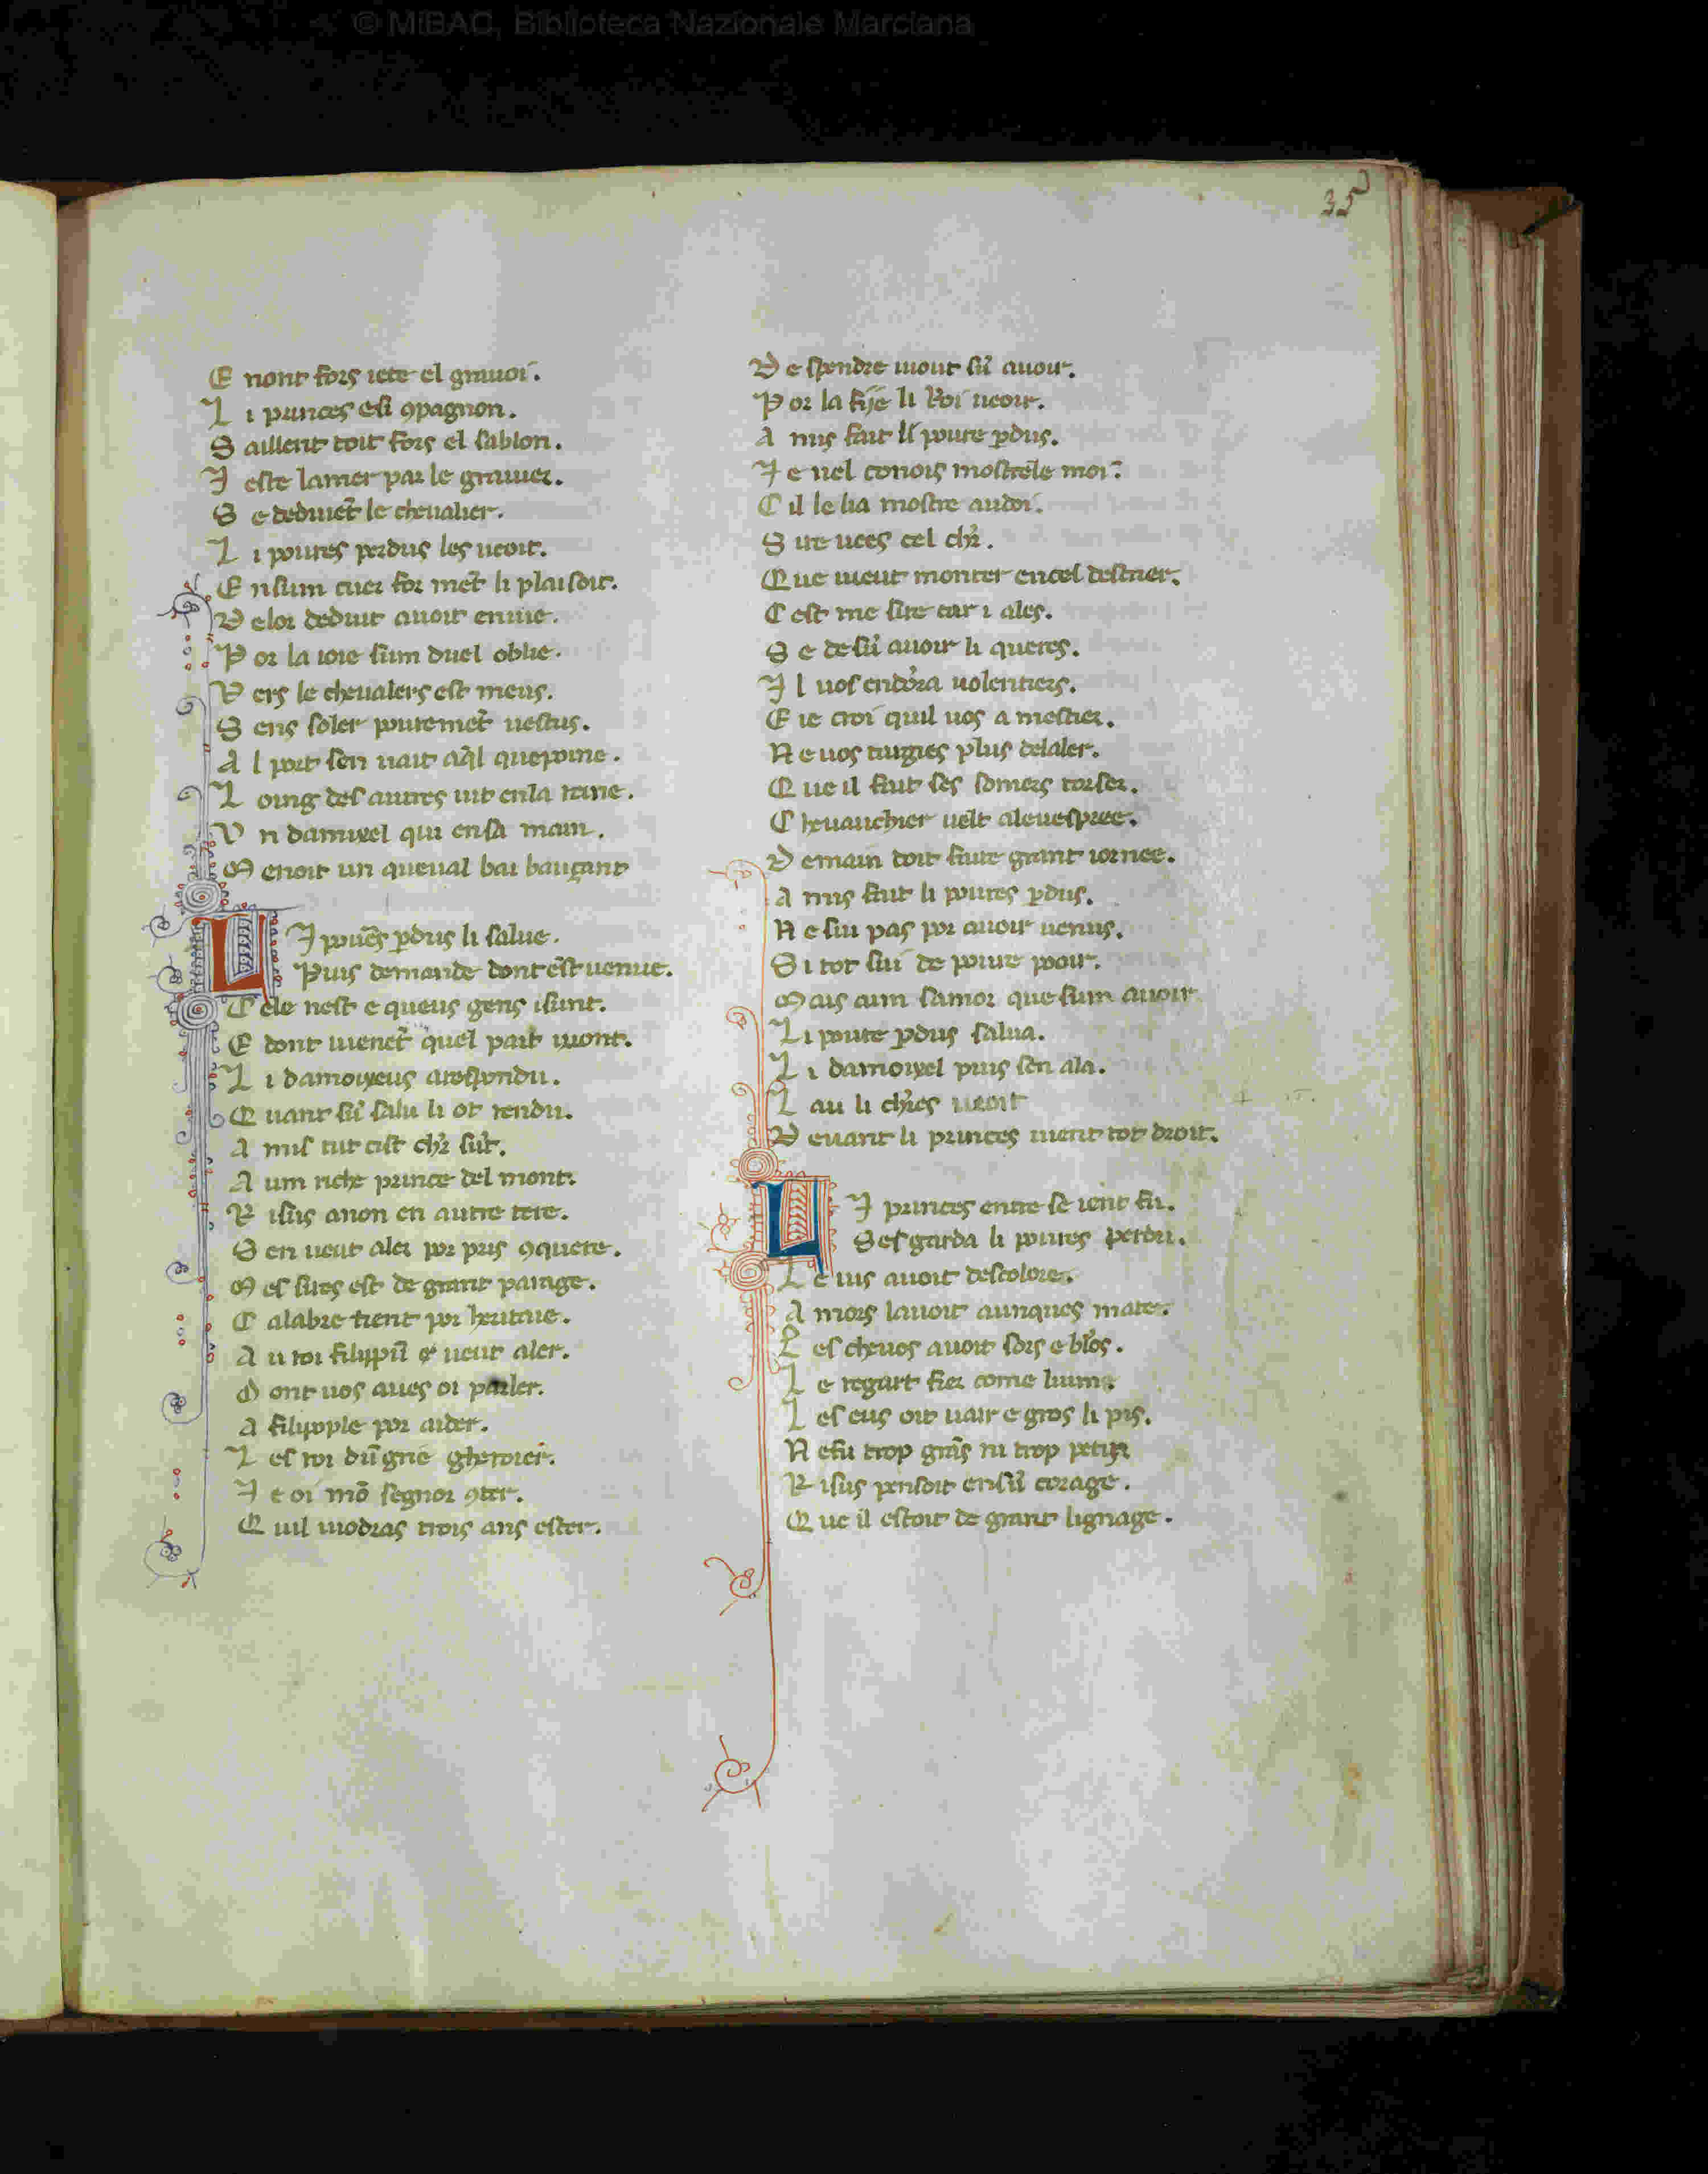 © MiBAC, Biblioteca Nazionale Marciana
35
E nont fors iete el grauoi.
L i princes esli ꝯpagnon.
S aillent toit fors el sablon.
J oste lamer par le grauier.
S e deduiēt le cheualier.
L i poures perdus les ueoit.
E nsum cuer for mēt li plaisoit.
D elor deduit auoit enuie.
P or la ioie sum duel oblie.
V ers le cheualers est meus.
S ens soler pouremēt uestus.
A l port sen uait
L oing des autres uit enla
V n damixel qui ensa main.
M enoit un queual bai bauçant
L J poūes ꝑdus li salue.
Puis demande dont ēst uenue.
C ele nest e queus gens isunt.
E dont uienēt quel part uont.
L i damoixeus arespondu.
Q uant sū salu li ot rendu.
A mis tut cist chr̄ sūt.
A um riche prince del mont.
R isus anon en autre tere.
S en ueut aler por pris ꝯquere.
M es sires est de grant parage.
C alabre tient por heritaie.
A u roi filipū e ueut aler.
D ont uos aues oi parler.
A filipople por aider.
L es roi dūgrie gheroier.
J e oi mō segnor ꝯter.
Q uil uiodras trois ans ester.
D espendre uiout sū auoir.
P or la fije li Roi ueoir.
A mis fait li poure ꝑdus.
J e nel conois mostrele moi.
C il le lia mostre audoi.
S ire uees cel chr̄.
Q ue uieut monter encel destrier.
C est me sire car i ales.
S e de sū auoir li queres.
J l uos endōra uolentiers.
E ie croi quil uos a mestier.
N e uos targies plus delaler.
Q ue il fait ses somers torser.
C heuauchier uelt aleuespree.
D emain doit faire grant iornee.
A mis fait li poures ꝑdus.
N e sui pas por auoir uenus.
S i tot sui de poure pooir.
M ais aim samor que sum auoir
L i poure ꝑdus salua.
L i damoixel puis sen ala.
L au li chr̄es ueoit
D euant li princes uient tot droit.
L J princes entre se ient fu.
Sesgarda li poures perdu.
L e uis auoit descolore.
A mors lauoit aunques mate.
L es cheuos auoit sors e blōs.
L e regart fier come liums
L es eus oit uair e gros li pis.
N efu trop grās ni trop petis
R isus pensoit ensū corage.
Q ue il estoit de grant lignage.